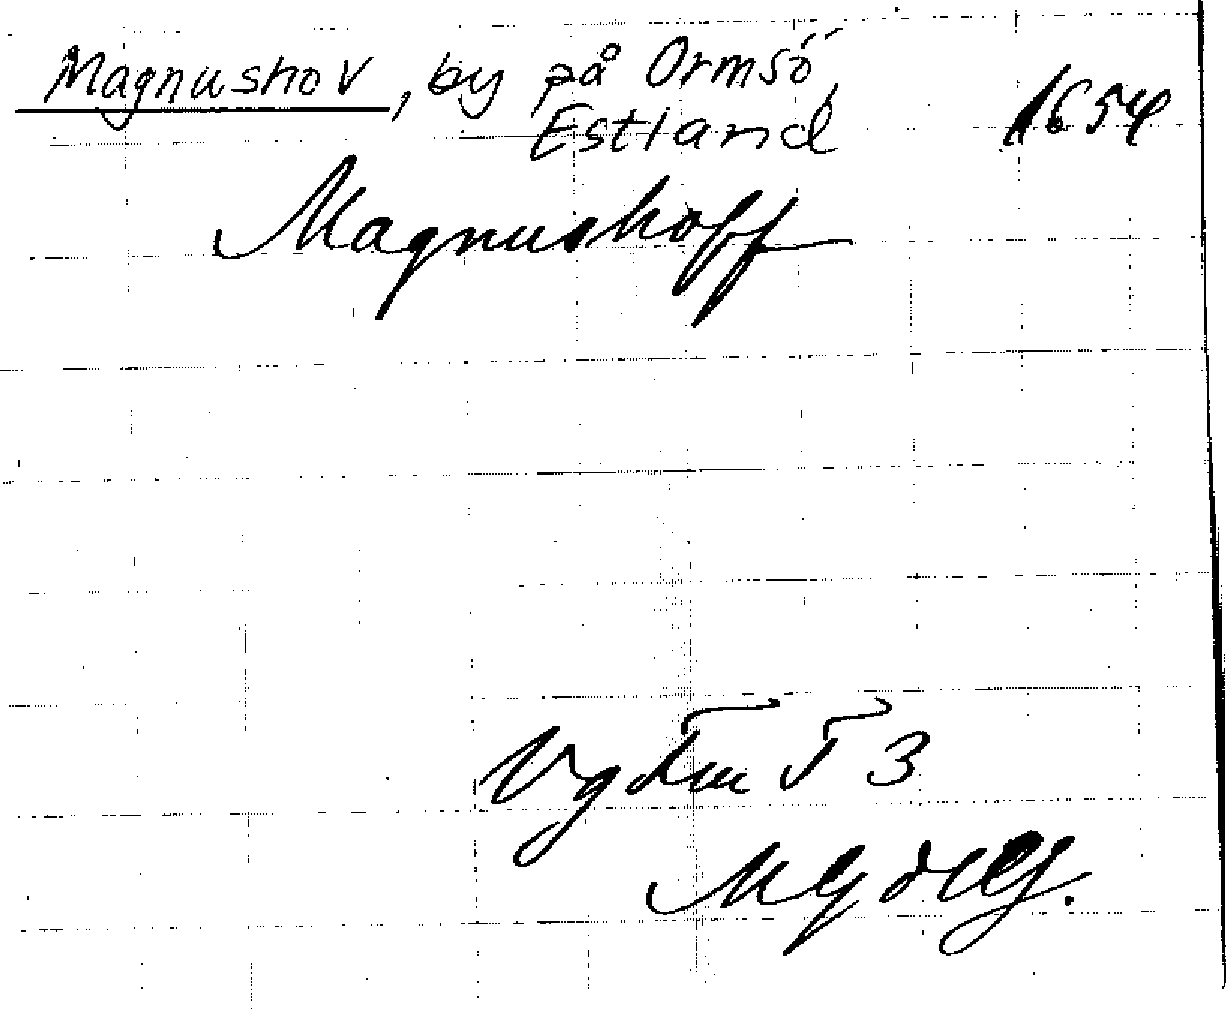 Magnushov, by på Ormsö, 1654
Estland
Magnushoff
3